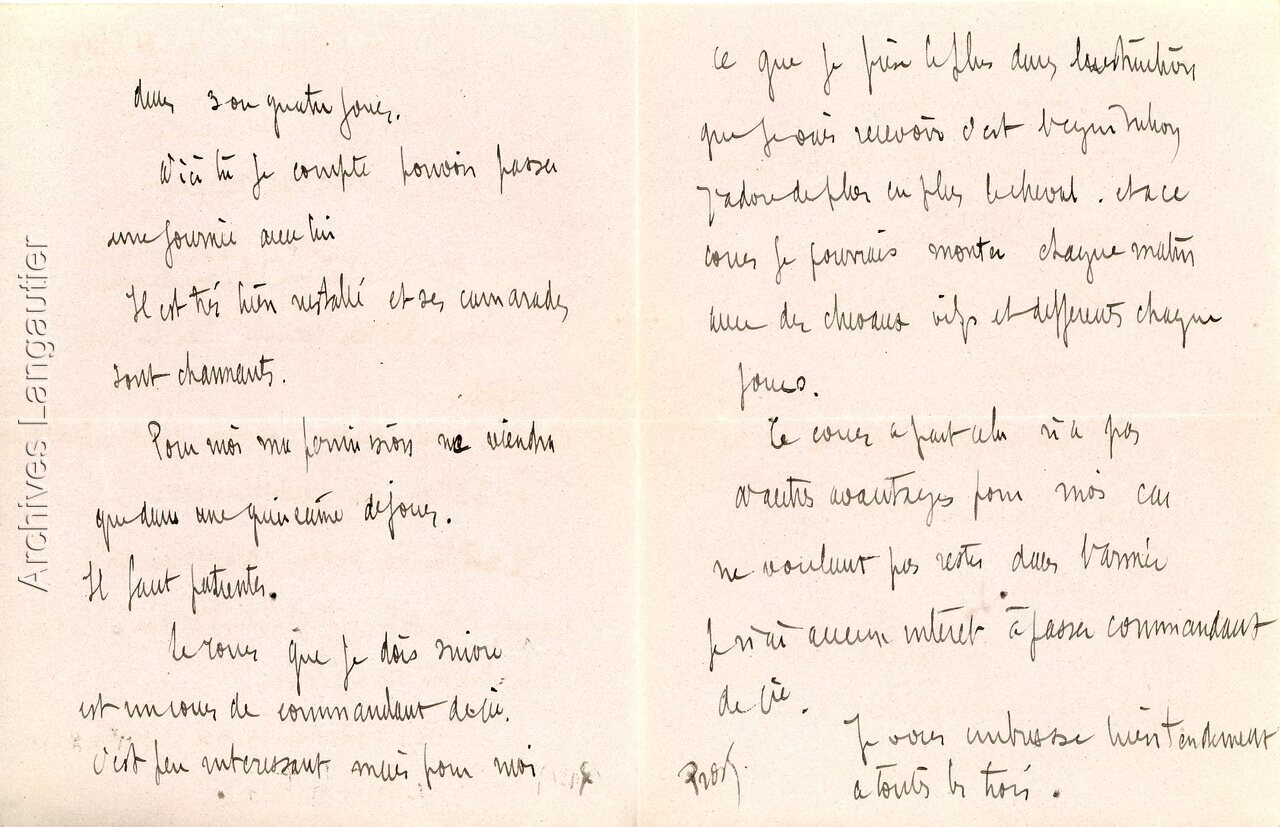 dans 3 ou quatre jours.
d'ici là je compte pouvoir passer
une journée avec lui
Il est très bien installé et ses camarades
sont charmants.
Pour moi ma permission ne viendra
que dans une quinzaine de jours.
Il faut patienter.
Le cours que je dois suivre
est un cours de commandant de Cie.
c'est peu interessant mais pour moi
ce que je prise le plus dans l'instruction
que je vais recevoir c'est l'equitation
J'adore de plus en plus le cheval. et a ce
cours je pourrais monter chaque matin
avec des chevaux vifs et differents chaque
jours.
Ce cours a part cela n'a pas
d'autres avantages pour moi car
ne voulant pas rester dans l'armée
je n'ai aucun interet à passer commandant
de Cie.
Je vous embrasse bien tendrement
a toutes les trois.
Archives Langautier